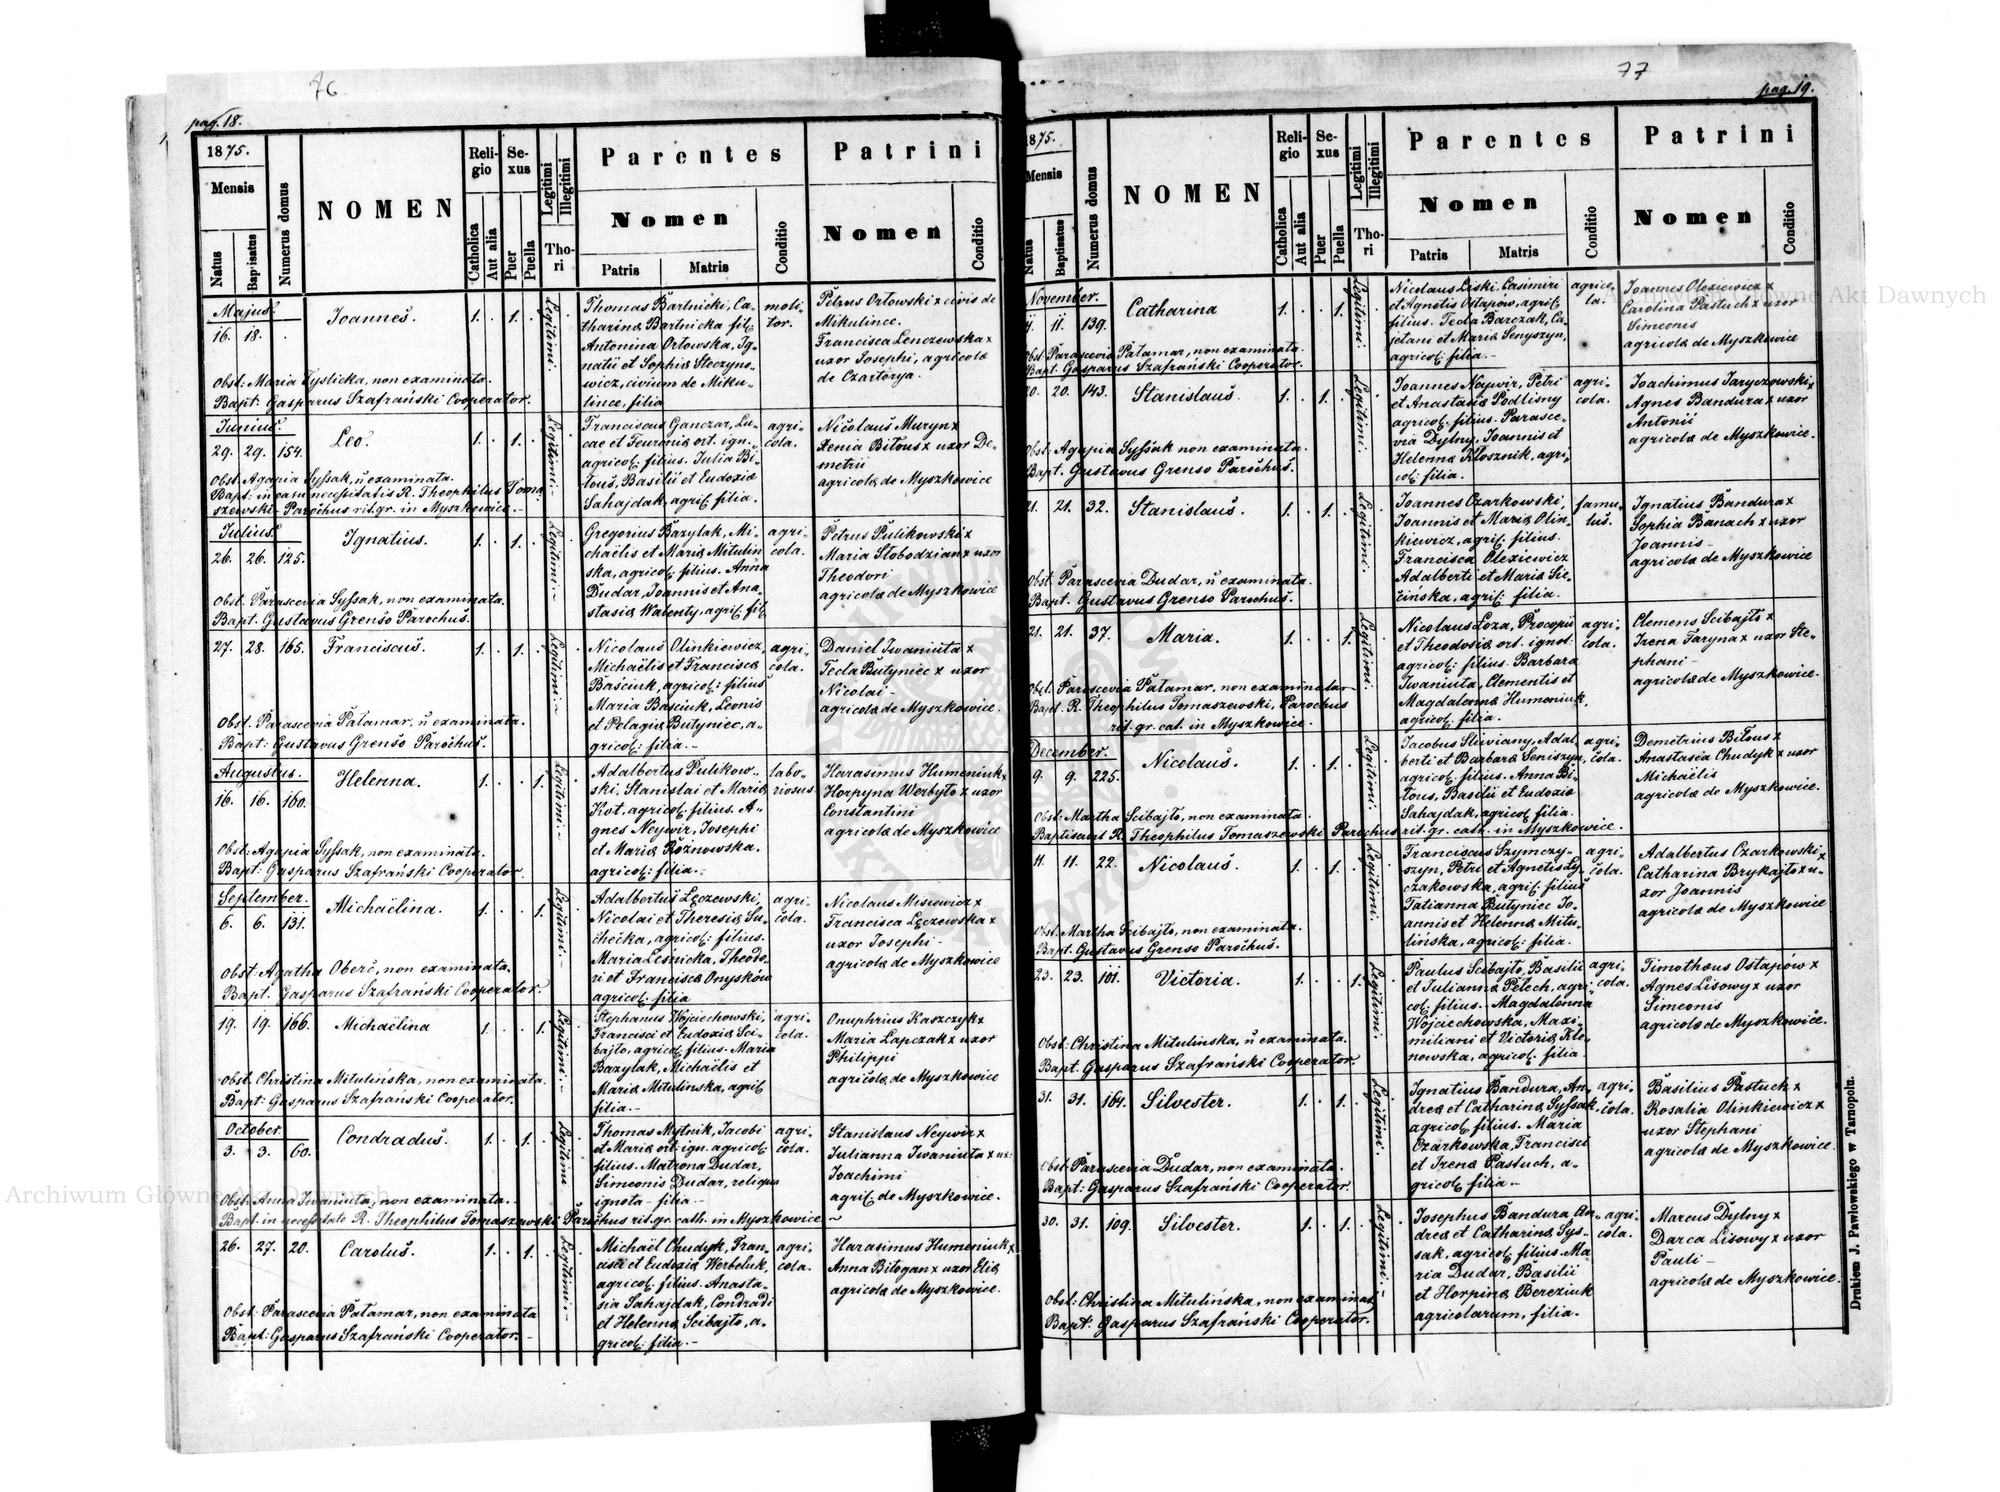 76
pag. 18.
1875.
Mensis
Natus
Baptisatus
Numerus domus
NOMEN
Religio
Catholica
Aut alia
Sexus
Puer
Puella
Legitimi
Illegitimi
Thori
Parentes
Nomen
Patris
Matris
Conditio
Patrini
Nomen
Conditio
Majus.
16. 18. Joannes. 1. . 1. . Legitimi.
Thomas Bartnicki, Ca-
tharina Bartnicka fil.
Antonina Ortowska, Ig-
natii et Sophia Steczyno-
wicz, civium de Miku-
lince, filia
moli-
tor.
Petrus Ortowski x civis de
Mikulince.
Francisca Lenczewska x
uxor Josephi, agricola
de Czartorya.
Obst: Maria Tyslicka, non examinata.
Bapt: Gasparus Szafrański Cooperator.
Junius.
29. 29. 154. Leo. 1. . 1. . Legitimi
Franciscus Ganczar, Lu-
cae et Feuronia ort. ign.
agricol. filius. Julia Bi-
tous, Basilii et Eudoxia
Sahajdak, agric. filia.
agri-
cola.
Nicolaus Muryn x
Xenia Bitous x uxor De-
metrii
agricola de Myszkowice
Obst. Agapia Syssak, n examinata.
Bapt: in casu necessitatis R. Theophilus Toma-
szewski Parochus rit. gr. in Myszkowice.
Julius.
26. 26. 125. Ignatius. 1. . 1. . Legitimi
Gregorius Bazylak, Mi-
chaëlis et Maria Mitulin
ska, agricol. filius. Anna
Dudar, Joannis et Ana-
stasia Watenty, agric. fil.
agri-
cola.
Petrus Pulikowski x
Maria Stobodzian x uxor
Theodori
agricola de Myszkowice
Obst. Parascevia Syssak, non examinata.
Bapt. Gustavus Grenso Parochus.
27. 28. 165. Franciscus. 1. . 1. . Legitimi
Nicolaus Olinkiewicz,
Michaëlis et Francisca
Basciuk, agricol: filius
Maria Basciuk, Leonis
et Pelagia Butyniec, a-
gricol: filia.-
agri-
cola.
Daniel Iwaniuta x
Tecla Butyniec x uxor
Nicolai -
agricola de Myszkowice.
Obst. Parascevia Patamar, n examinata.
Bapt: Gustavus Grenso Parochus.
Augustus.
16. 16. 160. Helenna. 1. . . 1. Legitimi
Adalbertus Pulikow-
ski, Stanislai et Maria
Kot, agricol. filius. A-
gnes Neywir, Josephi
et Maria Roznowska.
agricol: filia.-
labo-
riosus.
Harasimus Humeniuk x
Horpyna Werbyto x uxor
Constantini
agricola de Myszkowice
Obst: Agapia Syssak, non examinata.
Bapt: Gasparus Szafrański Cooperator
September.
6. 6. 131. Michaëlina. 1. . . 1. Legitimi
Adalbertus Lęczewski,
Nicolai et Theresia Su-
checka, agricol: filius.
Maria Lesnicka, Theodo-
ri et Francisca Onysków
agricol. filia
agri-
cola.
Nicolaus Misiewicz x
Francisca Lęczewska x
uxor Josephi -
agricola de Myszkowice
Obst: Agatha Oberc, non examinata.
Bapt. Gasparus Szafrański Cooperator.
19. 19. 166. Michaëlina 1. . . 1. Legitimi
Stephanus Wojciechowski,
Francisci et Eudoxia Sci-
bajto, agricol. filius. Maria
Bazylak, Michaëlis et
Maria Mitulinska, agric.
filia.-
agri-
cola.
Onuphrius Kaszczyk x
Maria Lapczak x uxor
Philippi
agricola de Myszkowice
Obst. Christina Mitulińska, non examinata.
Bapt: Gasparus Szafrański Cooperator.
October.
3. 3. 60. Condradus. 1. . 1. . Legitimi
Thomas Mytnik, Jacobi
et Maria ort. ign. agricol.
filius. Matrona Dudar,
Simeonis Dudar, reliqua
ignota - filia.-
agri-
cola.
Stanislaus Neywir x
Julianna Iwaniuta x ux:
Joachimi
agric. de Myszkowice.
Obst: Anna Iwaniuta, non examinata.
Bapt: in necessitate R. Theophilus Tomaszewski Parochus rit. gr. cath. in Myszkowice.
26. 27. 20. Carolus. 1. . 1. . Legitimi
Michaël Chudyk, Fran-
cisci et Eudoxia Werbeluk,
agricol. filius. Anasta-
sia Sahajdak, Condradi
et Helenna Scibajto, a-
gricol. filia.-
agri-
cola.
Harasimus Humeniuk x
Anna Bitogan x uxor Elia
agricola de Myszkowice.
Obst: Parascevia Patamar, non examinata
Bapt: Gasparus Szafrański Cooperator.-
77
pag. 19.
1875.
Mensis
Natus
Baptisatus
Numerus domus
NOMEN
Religio
Catholica
Aut alia
Sexus
Puer
Puella
Legitimi
Illegitimi
Thori
Parentes
Nomen
Patris
Matris
Conditio
Patrini
Nomen
Conditio
November.
11. 11. 139. Catharina 1. . . 1. Legitimi
Nicolaus Liski, Casimiri
et Agnetis Ostapów, agric.
filius. Tecla Barczak, Ca-
jetani et Maria Senyszyn,
agricol: filia.-
agrico-
la.
Joannes Olexiewicz x
Carolina Pastuch x uxor
Simeonis
agricola de Myszkowice
Obst. Parascevia Patamar, non examinata.
Bapt: Gasparus Szafrański Cooperator.
20. 20. 143. Stanislaus. 1. . 1. . Legitimi
Joannes Neywir, Petri
et Anastasia Podlisny
agricol. filius. Parasce-
via Dylny, Joannis et
Helenna Ktosznik, agri-
col. filia.
agri-
cola.
Joachimus Jaryczowski x
Agnes Bandura x uxor
Antonii
agricola de Myszkowice.
Obst: Agapia Syssak non examinata.
Bapt. Gustavus Grenso Parochus.
21. 21. 32. Stanislaus. 1. . 1. . Legitimi
Joannes Czarkowski,
Joannis et Maria Olin-
kiewicz, agric. filius.
Francisca Olexiewicz
Adalberti et Maria Sie-
cinska, agric. filia.
famu-
lus.
Ignatius Bandura x
Sophia Banach x uxor
Joannis -
agricola de Myszkowice
Obst: Parascevia Dudar, n examinata.
Bapt. Gustavus Grenso Parochus.
21. 21. 37. Maria. 1. . . 1. Legitimi
Nicolaus Loza, Procopii
et Theodosia ort. ignot.
agricol: filius. Barbara
Iwaniuta, Clementis et
Magdalenna Humeniuk,
agricol. filia.
agri-
cola.
Clemens Scibajto x
Irena Taryna x uxor Ste-
phani -
agricola de Myszkowice.
Obst. Parascevia Patamar, non examinata
Bapt. R. Theophilus Tomaszewski, Parochus
rit. gr. cat. in Myszkowice.
December.
9. 9. 225. Nicolaus. 1. . 1. . Legitimi
Jacobus Stiwiany, Adal-
berti et Barbara Seniszyn,
agricol: filius. Anna Bi-
tous, Basilii et Eudoxia
Sahajdak, agricol. filia.
agri-
cola.
Demetrius Bitous x
Anastasia Chudyk x uxor
Michaëlis
agricola de Myszkowice.
Obst: Martha Scibajto, non examinata
Baptisavit R. Theophilus Tomaszewski Parochus rit. gr. cath. in Myszkowice.
11. 11. 22. Nicolaus. 1. . 1. . Legitimi
Franciscus Szymczy-
szyn, Petri et Agnetis Ly-
czakowska, agric. filius
Tatianna Butyniec Jo-
annis et Helenna Mitu-
lińska, agricol: filia.
agri-
cola.
Adalbertus Czarkowski x
Catharina Brykajto x u-
xor Joannis
agricola de Myszkowice
Obst. Martha Scibajto, non examinata.
Bapt. Gustavus Grenso Parochus.
23. 23. 101. Victoria. 1. . . 1. Legitimi
Paulus Scibajto, Basilii
et Julianna Pelech, agri-
col. filius. Magdalenna
Wojciechowska, Maxi-
miliani et Victoria Kle-
nowska, agricol: filia
agri-
cola.
Timothæus Ostapów x
Agnes Lisowy x uxor
Simeonis
agricola de Myszkowice.
Obst: Christina Mitulinska, n examinata.
Bapt: Gasparus Szafrański Cooperator.
31. 31. 164. Silvester. 1. . 1. . Legitimi
Ignatius Bandura, An-
drea et Catharina Syssak,
agricol. filius. Maria
Czarkowska, Francisci
et Irena Pastuch, a-
gricol: filia.-
agri-
cola.
Basilius Pastuch x
Rosalia Olinkiewicz x
uxor Stephani
agricola de Myszkowice.
Obst: Parascevia Dudar, non examinata.
Bapt: Gasparus Szafrański Cooperator.
30. 31. 109. Silvester. 1. . 1. . Legitimi
Josephus Bandura, An-
drea et Catharina Sys-
sak, agricol. filius. Ma-
ria Dudar, Basilii
et Horpina Bereziuk
agricolarum, filia.
agri-
cola.
Marcus Dylny x
Darca Lisowy x uxor
Pauli -
agricola de Myszkowice.
Obst: Christina Mitulińska, non examinat
Bapt: Gasparus Szafrański Cooperator.
Drukiem J. Pawłowskiego w Tarnopolu.
Archiwum Główne Akt Dawnych
Archiwum Główne Akt Dawnych